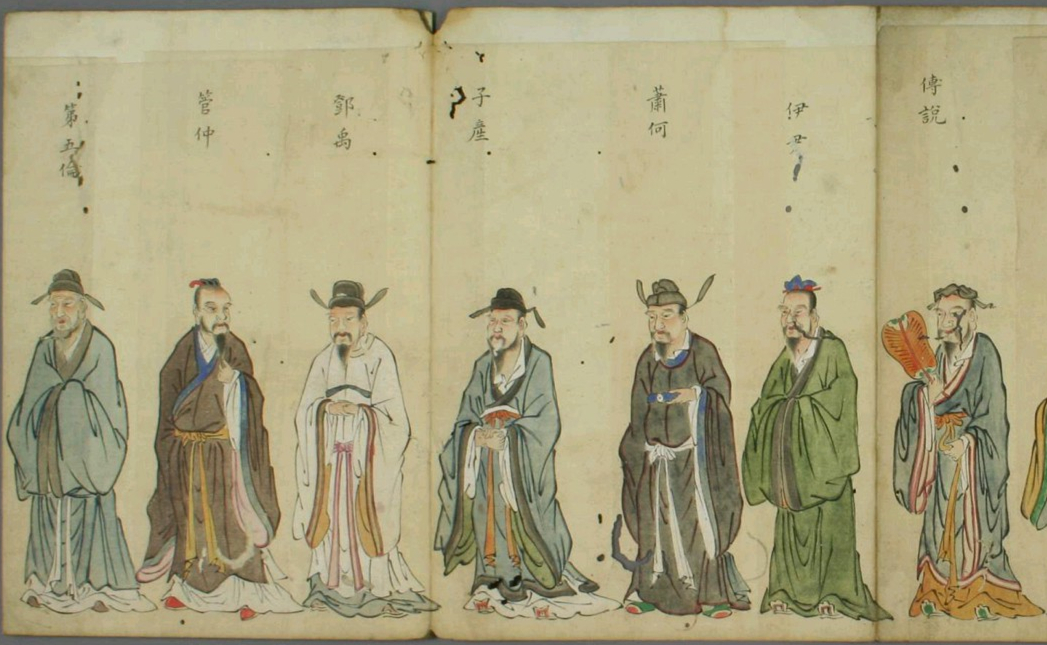 傳説
伊尹
蕭何
子産
鄧禹
管仲
第五倫